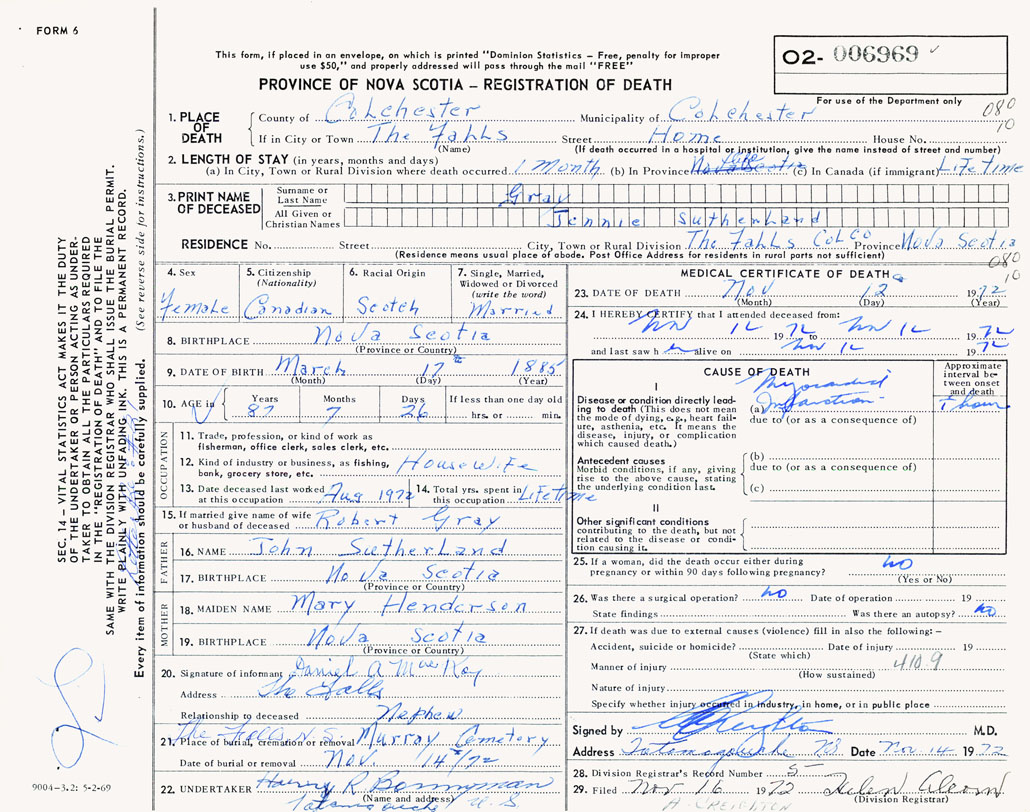 FORM 6
This form, if placed in an envelope, on which is printed "Dominion Statistics – Free, penalty for improper
use $50," and properly addressed will pass through the mail "FREE"
PROVINCE OF NOVA SCOTIA – REGISTRATION OF DEATH
O2- 006969
For use of the Department only
080
10
1. PLACE OF DEATH
County of Colchester Municipality of Colchester
If in City or Town The Falls Street Home House No.
(Name) (If death occurred in a hospital or institution, give the name instead of street and number)
2. LENGTH OF STAY (in years, months and days)
(a) In City, Town or Rural Division where death occurred 1 Month (b) In Province Nova Scotia Life (c) In Canada (if immigrant) LifeTime
3. PRINT NAME OF DECEASED
Surname or Last Name Gray
All Given or Christian Names Jennie Sutherland
RESIDENCE No. Street City, Town or Rural Division The Falls Col Co Province Nova Scotia
(Residence means usual place of abode. Post Office Address for residents in rural parts not sufficient)
080
10
4. Sex Female
5. Citizenship (Nationality) Canadian
6. Racial Origin Scotch
7. Single, Married, Widowed or Divorced (write the word) Married
8. BIRTHPLACE Nova Scotia
(Province or Country)
9. DATE OF BIRTH March 17th 1885
(Month) (Day) (Year)
10. AGE in Years 87 Months 7 Days 26 If less than one day old
hrs. or min.
OCCUPATION
11. Trade, profession, or kind of work as
fisherman, office clerk, sales clerk, etc.
12. Kind of industry or business, as fishing,
bank, grocery store, etc. Housewife
13. Date deceased last worked
at this occupation Aug 1972
14. Total yrs. spent in
this occupation LifeTime
15. If married give name of wife
or husband of deceased Robert Gray
FATHER
16. NAME John Sutherland
17. BIRTHPLACE Nova Scotia
(Province or Country)
MOTHER
18. MAIDEN NAME Mary Henderson
19. BIRTHPLACE Nova Scotia
(Province or Country)
20. Signature of informant Daniel A MacKay
Address The Falls
Relationship to deceased Nephew
The Falls N.S.
21. Place of burial, cremation or removal Murray Cemetery
Date of burial or removal Nov. 14th/72
22. UNDERTAKER Harry R Bonnyman
(Name and address)
Tatamagouche N.S
MEDICAL CERTIFICATE OF DEATH
23. DATE OF DEATH Nov 12 1972
(Month) (Day) (Year)
24. I HEREBY CERTIFY that I attended deceased from:
Nov 12 1972 to Nov 12 1972
and last saw her alive on Nov 12 1972
CAUSE OF DEATH
Approximate interval between onset and death
I
Disease or condition directly leading to death (This does not mean the mode of dying, e.g., heart failure, asthenia, etc. It means the disease, injury, or complication which caused death.)
(a) Myocardial Infarction 1 hour
due to (or as a consequence of)
Antecedent causes
Morbid conditions, if any, giving rise to the above cause, stating the underlying condition last.
(b)
due to (or as a consequence of)
(c)
II
Other significant conditions
contributing to the death, but not related to the disease or condition causing it.
25. If a woman, did the death occur either during
pregnancy or within 90 days following pregnancy? No
(Yes or No)
26. Was there a surgical operation? No Date of operation 19
State findings Was there an autopsy? No
27. If death was due to external causes (violence) fill in also the following: –
Accident, suicide or homicide? Date of injury 19
(State which)
Manner of injury 410.9
(How sustained)
Nature of injury
Specify whether injury occurred in industry, in home, or in public place
Signed by M.D.
Address Tatamagouche NS Date Nov 14 1972
28. Division Registrar's Record Number 5
29. Filed Nov 16 1972 Helen Alcorn
(Division Registrar)
A. CREIGHTON
SEC. 14 – VITAL STATISTICS ACT MAKES IT THE DUTY
OF THE UNDERTAKER OR PERSON ACTING AS UNDER-
TAKER TO OBTAIN ALL THE PARTICULARS REQUIRED
IN THE "REGISTRATION OF DEATH" AND TO FILE THE
SAME WITH THE DIVISION REGISTRAR WHO SHALL ISSUE THE BURIAL PERMIT.
WRITE PLAINLY WITH UNFADING INK. THIS IS A PERMANENT RECORD.
Every item of information should be carefully supplied. (See reverse side for instructions.)
9004-3.2: 5-2-69